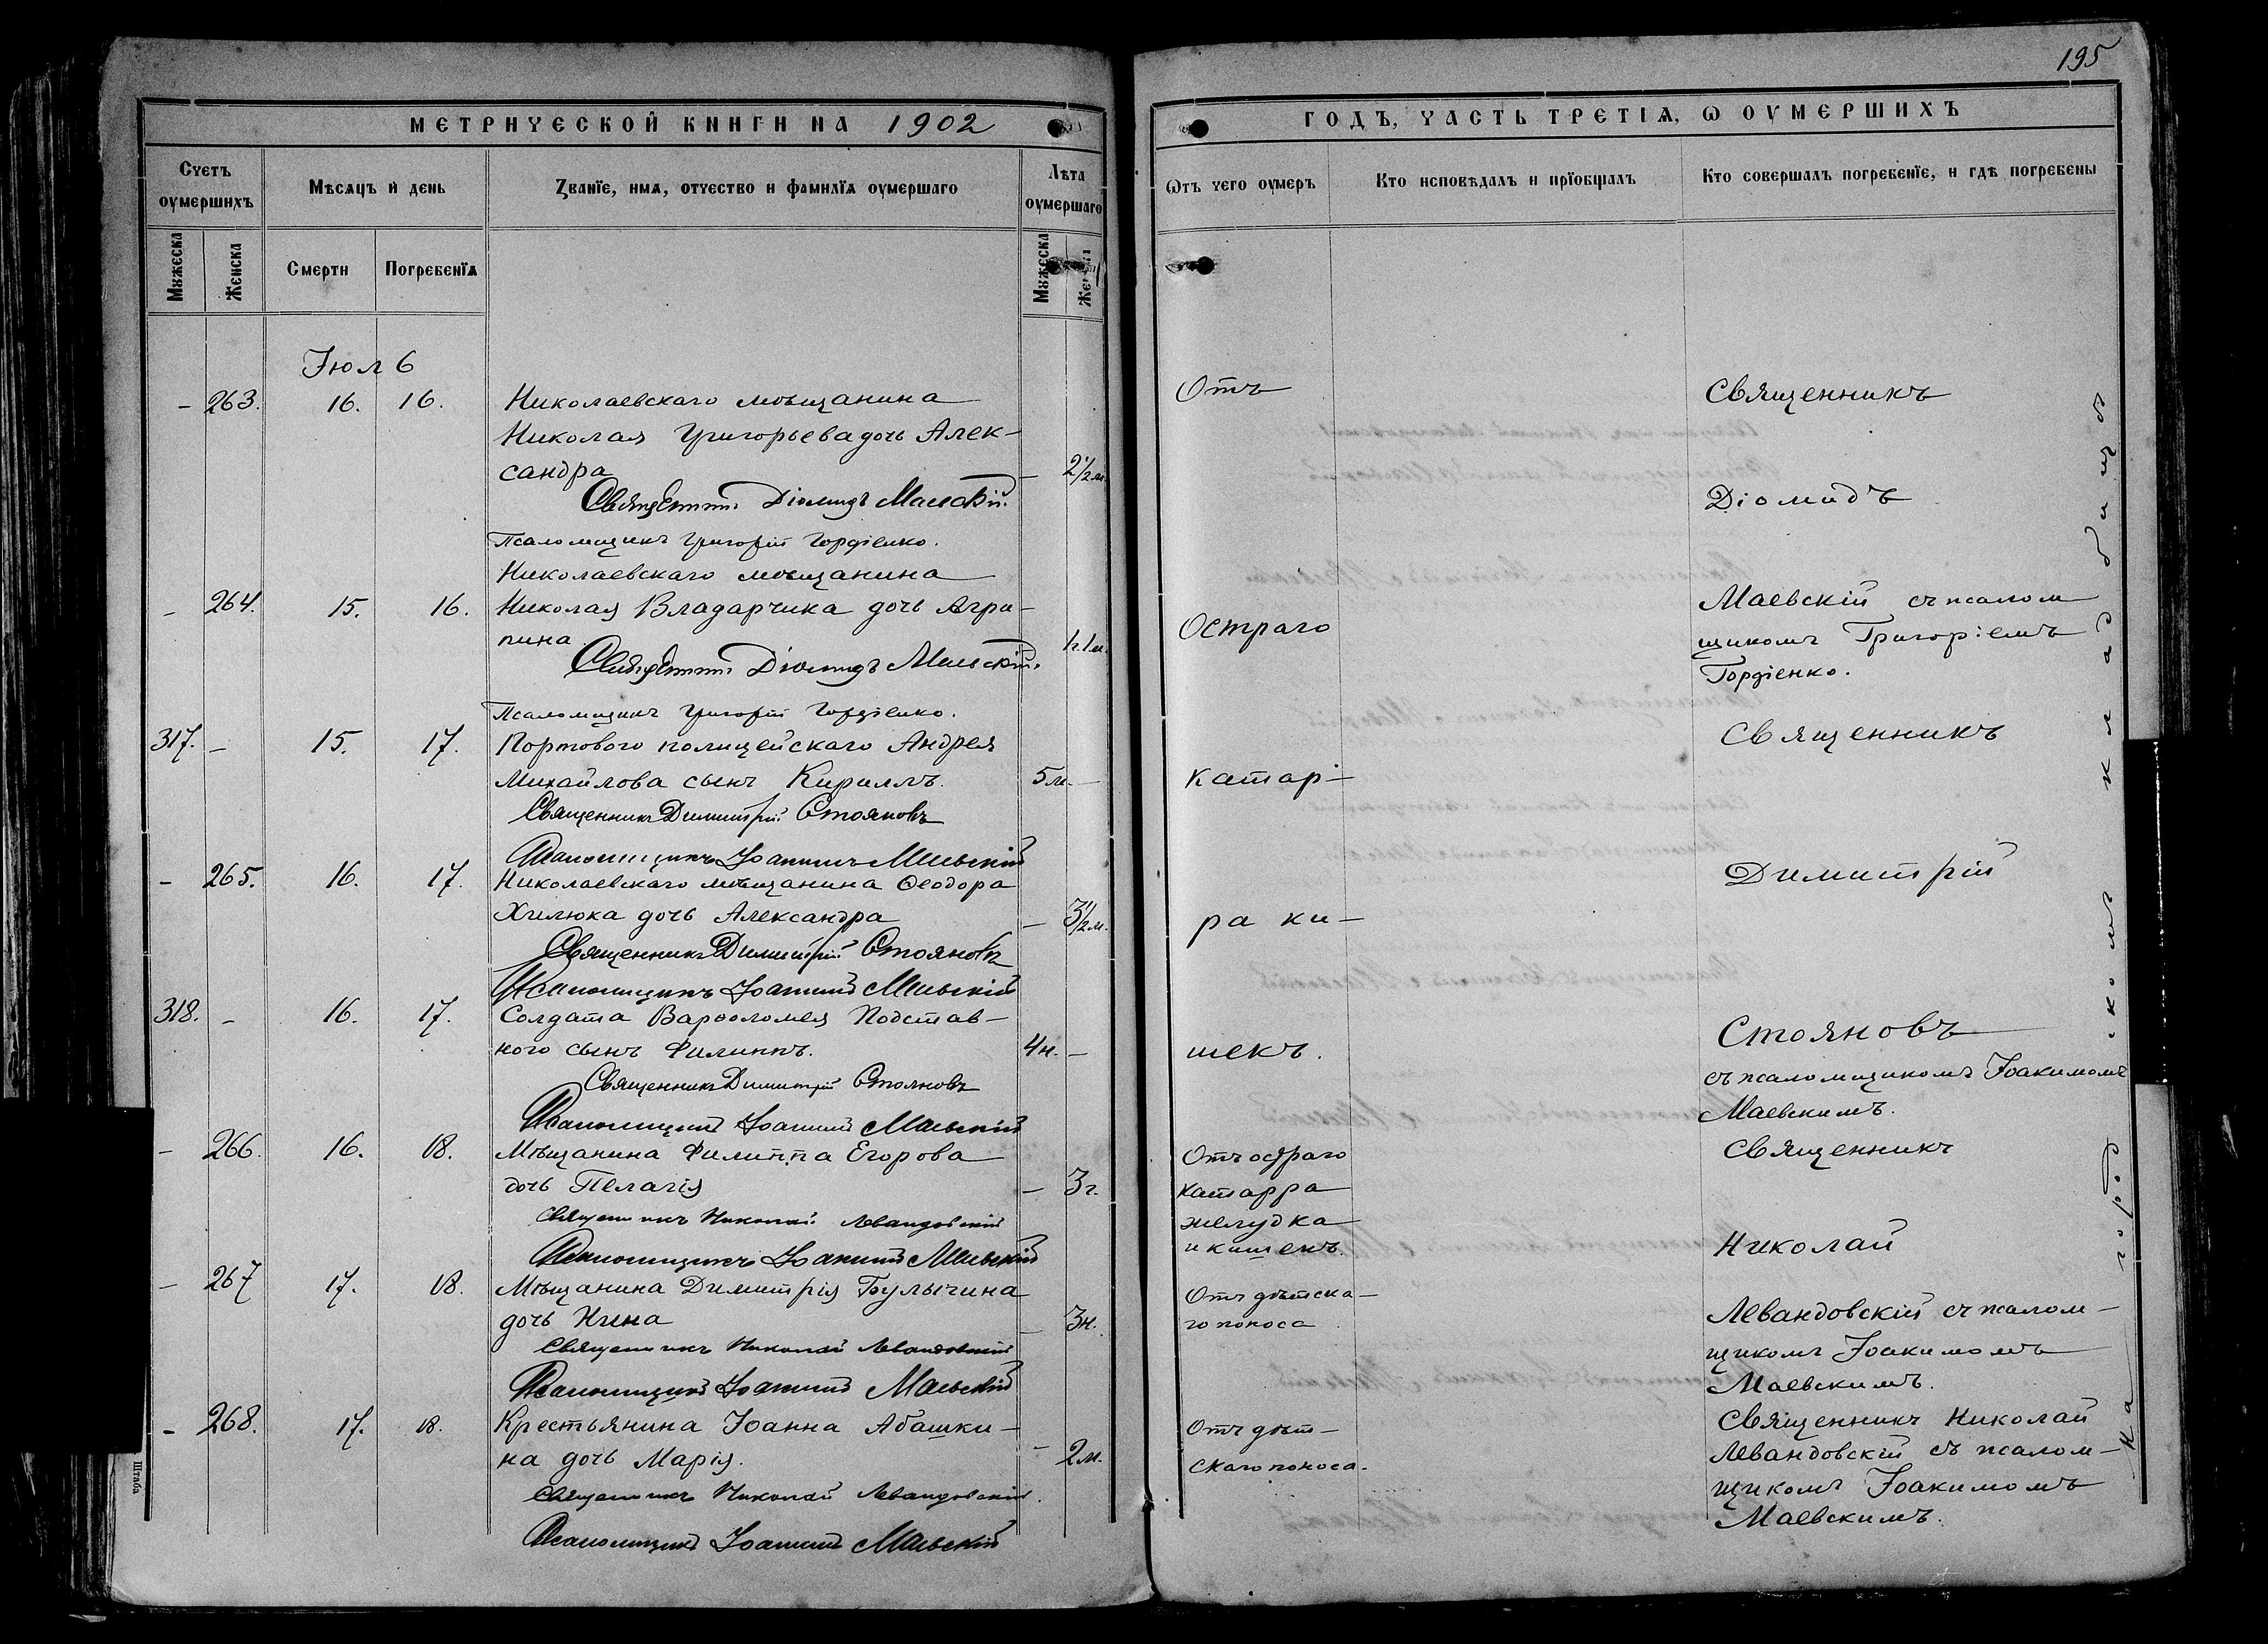 195
МЕТРИЧЕСКОЙ КНИГИ НА 1902
ГОДЪ, ЧАСТЬ ТРЕТІѦ, Ѡ ОУМЕРШИХЪ
Счетъ оумершихъ
Мѣсяцъ и день
Званїе, имя, отчество и фамилїя оумершаго
Лѣта оумершаго
Ѡтъ чего оумеръ
Кто исповѣдалъ и прїобщалъ
Кто совершалъ погребенїе, и гдѣ погребены
Мужеска
Женска
Смерти
Погребенїя
Мужеска
Іюль
- 263. 16. 16. Николаевскаго мѣщанина
Николая Григорьева дочь Алек-
сандра - 2½ м.
Священникъ Діомидъ Маевскій.
Псаломщикъ Григорій Гордіенко.
Николаевскаго мѣщанина
- 264. 15. 16. Николая Владарчика дочь Агри-
пина 1 г. 1 м.
Священникъ Діомидъ Маевскій.
Псаломщикъ Григорій Гордіенко.
317. - 15. 17. Портового полицейскаго Андрея
Михайлова сынъ Кириллъ. 5 м. -
Священникъ Димитрій Стояновъ
Псаломщикъ Іоакимъ Маевскій
- 265. 16. 17. Николаевскаго мѣщанина Ѳеодора
Хилюка дочь Александра - 3½ м.
Священникъ Димитрій Стояновъ
Псаломщикъ Іоакимъ Маевскій
318. - 16. 17. Солдата Варѳоломея Подстав-
ного сынъ Филиппъ. 4 н. -
Священникъ Димитрій Стояновъ
Псаломщикъ Іоакимъ Маевскій
- 266. 16. 18. Мѣщанина Филиппа Егорова
дочь Пелагія - 3 г.
Священникъ Николай Левандовскій
Псаломщикъ Іоакимъ Маевскій
- 267 17. 18. Мѣщанина Димитрія Булычина
дочь Нина - 3 н.
Священникъ Николай Левандовскій
Псаломщикъ Іоакимъ Маевскій
- 268. 17. 18. Крестьянина Іоанна Абашки-
на дочь Марія. - 2 м.
Священникъ Николай Левандовскій.
Псаломщикъ Іоакимъ Маевскій
Штаба
Отъ
Остраго
катар-
ра ки-
шекъ.
Отъ остраго
катарра
желудка
и кишекъ.
Отъ дѣтска-
го поноса
Отъ дѣт-
скаго поноса.
Священникъ
Діомидъ
Маевскій съ псалом
щикомъ Григоріемъ
Гордіенко.
Священникъ
Димитрій
Стояновъ
съ псаломщикомъ Іоакимомъ
Маевскимъ.
Священникъ
Николай
Левандовскій съ псалом-
щикомъ Іоакимомъ
Маевскимъ.
Священникъ Николай
Левандовскій съ псалом-
щикомъ Іоакимомъ
Маевскимъ.
на город скомъ кладбищѣ